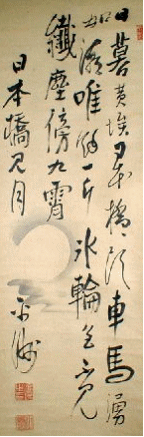 日暮黄埃日本橋〻頭車馬湧
如潮唯一片氷輪色不見
纖塵傍九霄
日本橋見月